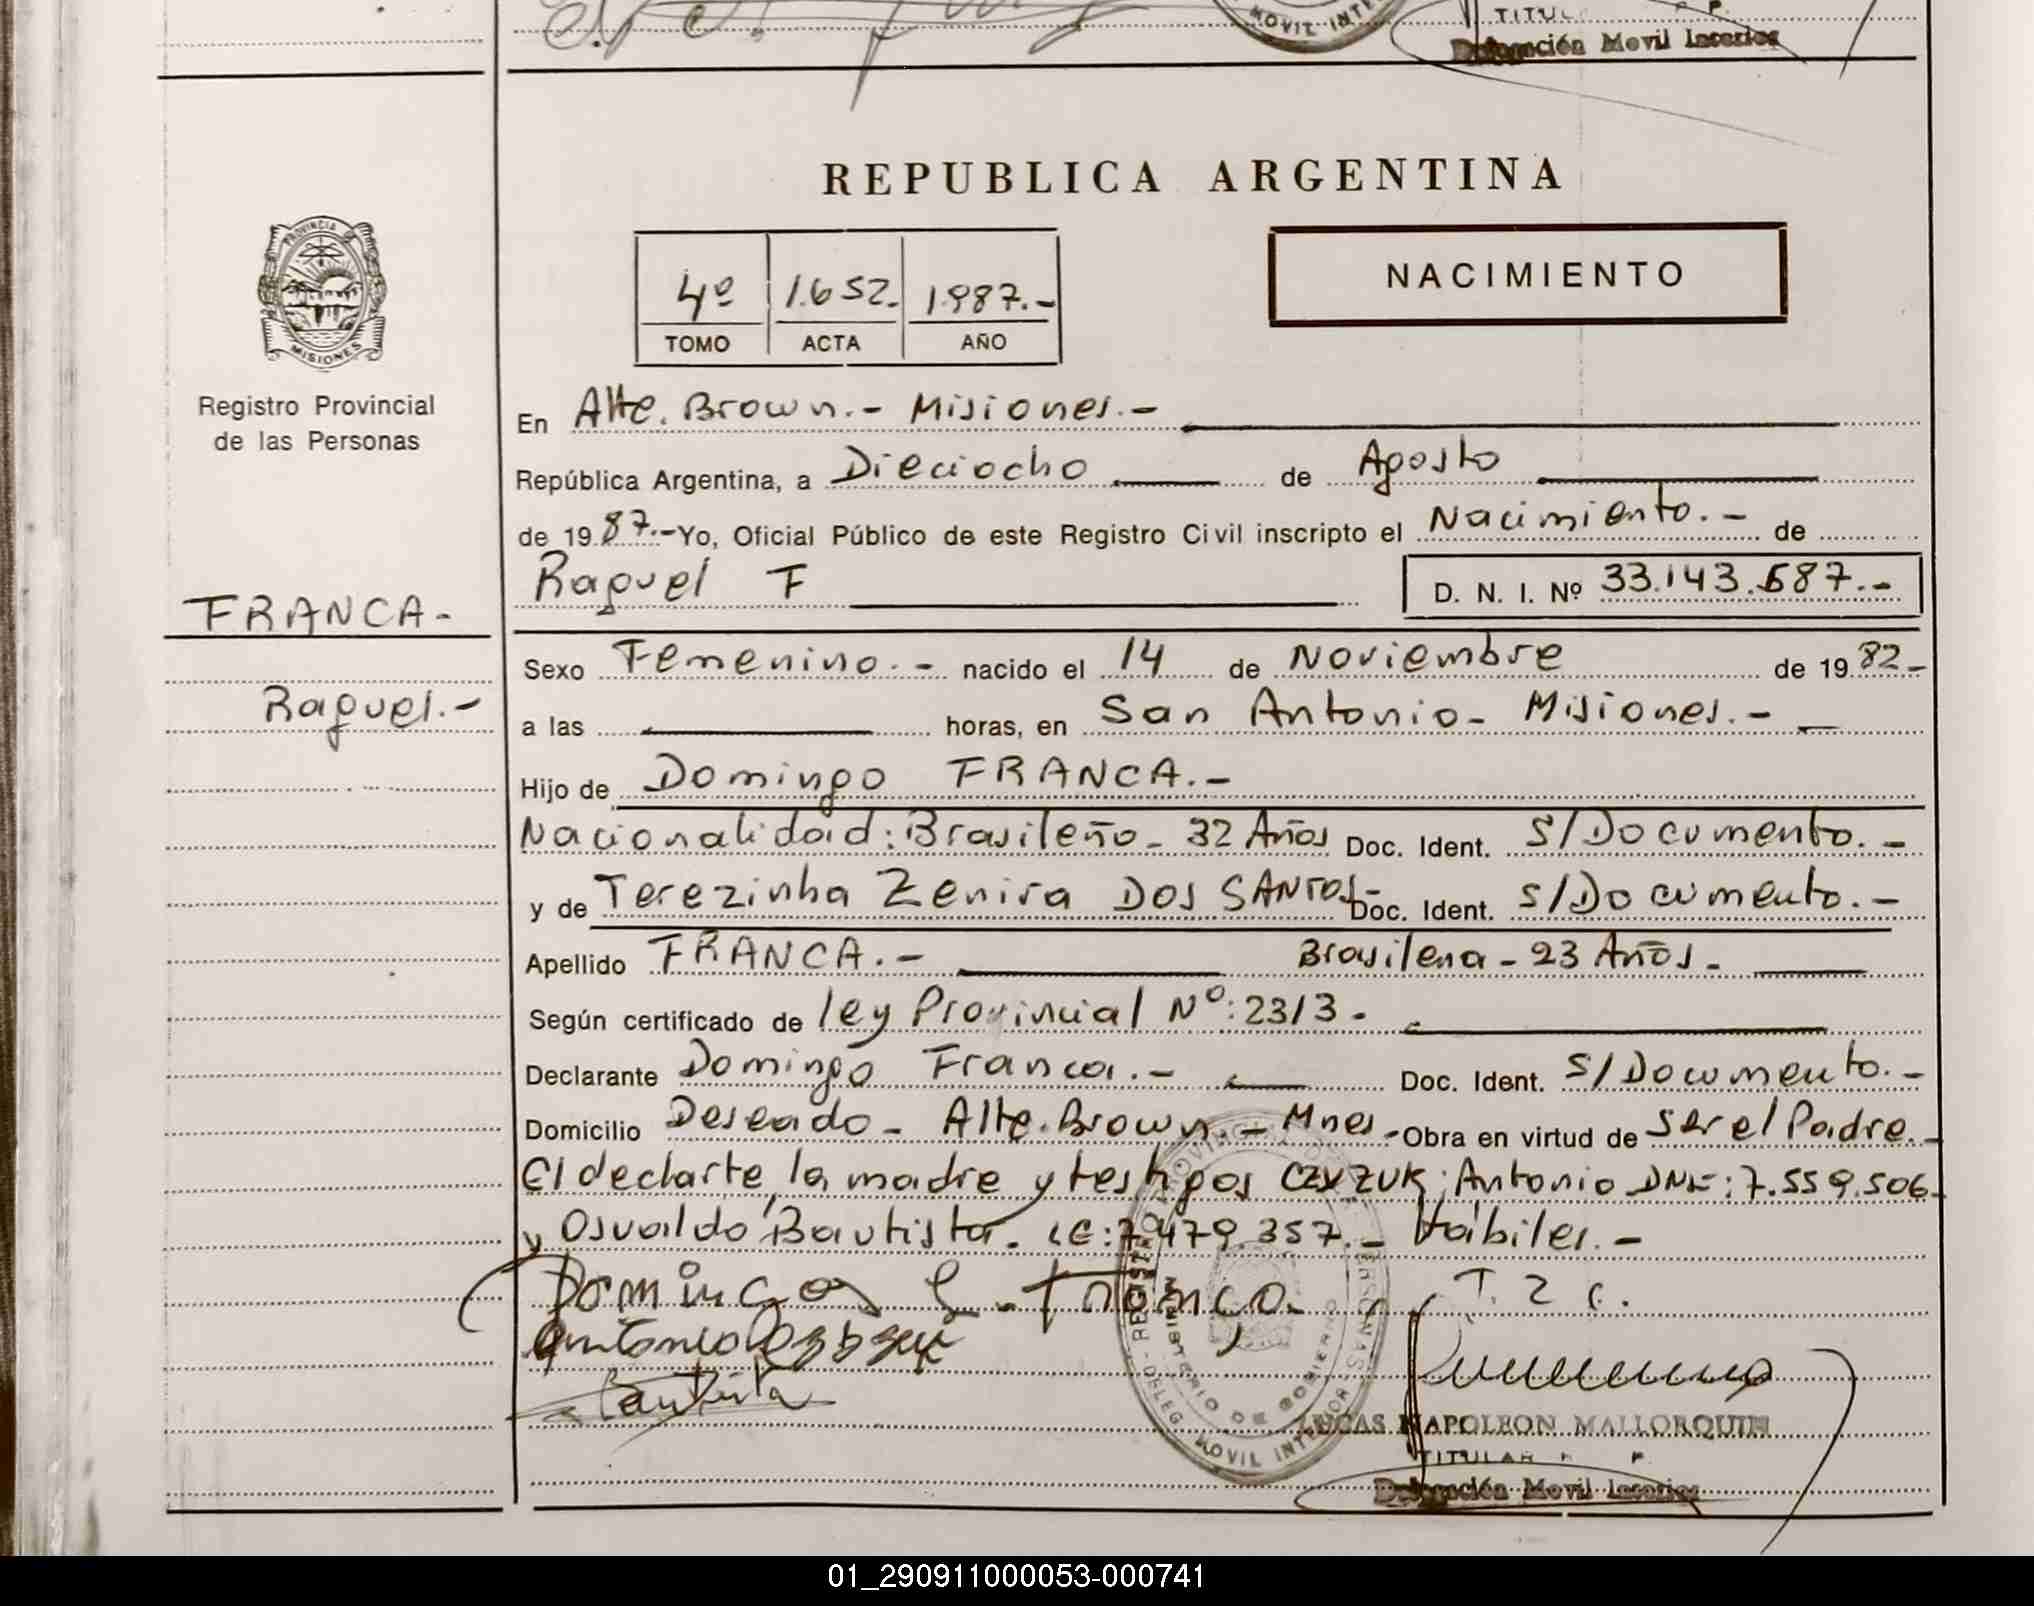 MOVIL INTE
TITUL P.
Delegación Movil Interior
REPUBLICA ARGENTINA
PROVINCIA DE
MISIONES
4º 1.652.- 1.987.-
TOMO ACTA AÑO
NACIMIENTO
Registro Provincial
de las Personas
En Alte. Brown.- Misiones.-
República Argentina, a Dieciocho de Agosto
de 1987.- Yo, Oficial Público de este Registro Civil inscripto el Nacimiento.- de
Raquel F D. N. I. Nº 33.143.687.-
FRANCA-
Raquel.-
Sexo Femenino.- nacido el 14 de Noviembre de 1982-
a las horas, en San Antonio- Misiones.-
Hijo de Domingo FRANCA.-
Nacionalidad: Brasileño- 32 Años Doc. Ident. S/Documento.-
y de Terezinha Zenira DOS SANTOS- Doc. Ident. S/Documento.-
Apellido FRANCA.- Brasilena- 23 Años-
Según certificado de ley Provincial Nº: 2313.
Declarante Domingo Franca.- Doc. Ident. S/Documento.-
Domicilio Deseado- Alte. Brown.- Mnes- Obra en virtud de Ser el Padre.-
El declarte, la madre y testigos CZYZUK; Antonio DNI: 7.559.506-
y Osvaldo Bautista. LE: 7.479.357.- Hábiles.-
Domingos Franca T. Z C.
Antonio
Bautista
REGISTRO PROVINCIAL DE LAS PERSONAS
MINISTERIO DE GOBIERNO
DELEG. MOVIL INTERIOR
LUCAS NAPOLEON MALLORQUIN
TITULAR P.
Delegación Movil Interior
01_290911000053-000741